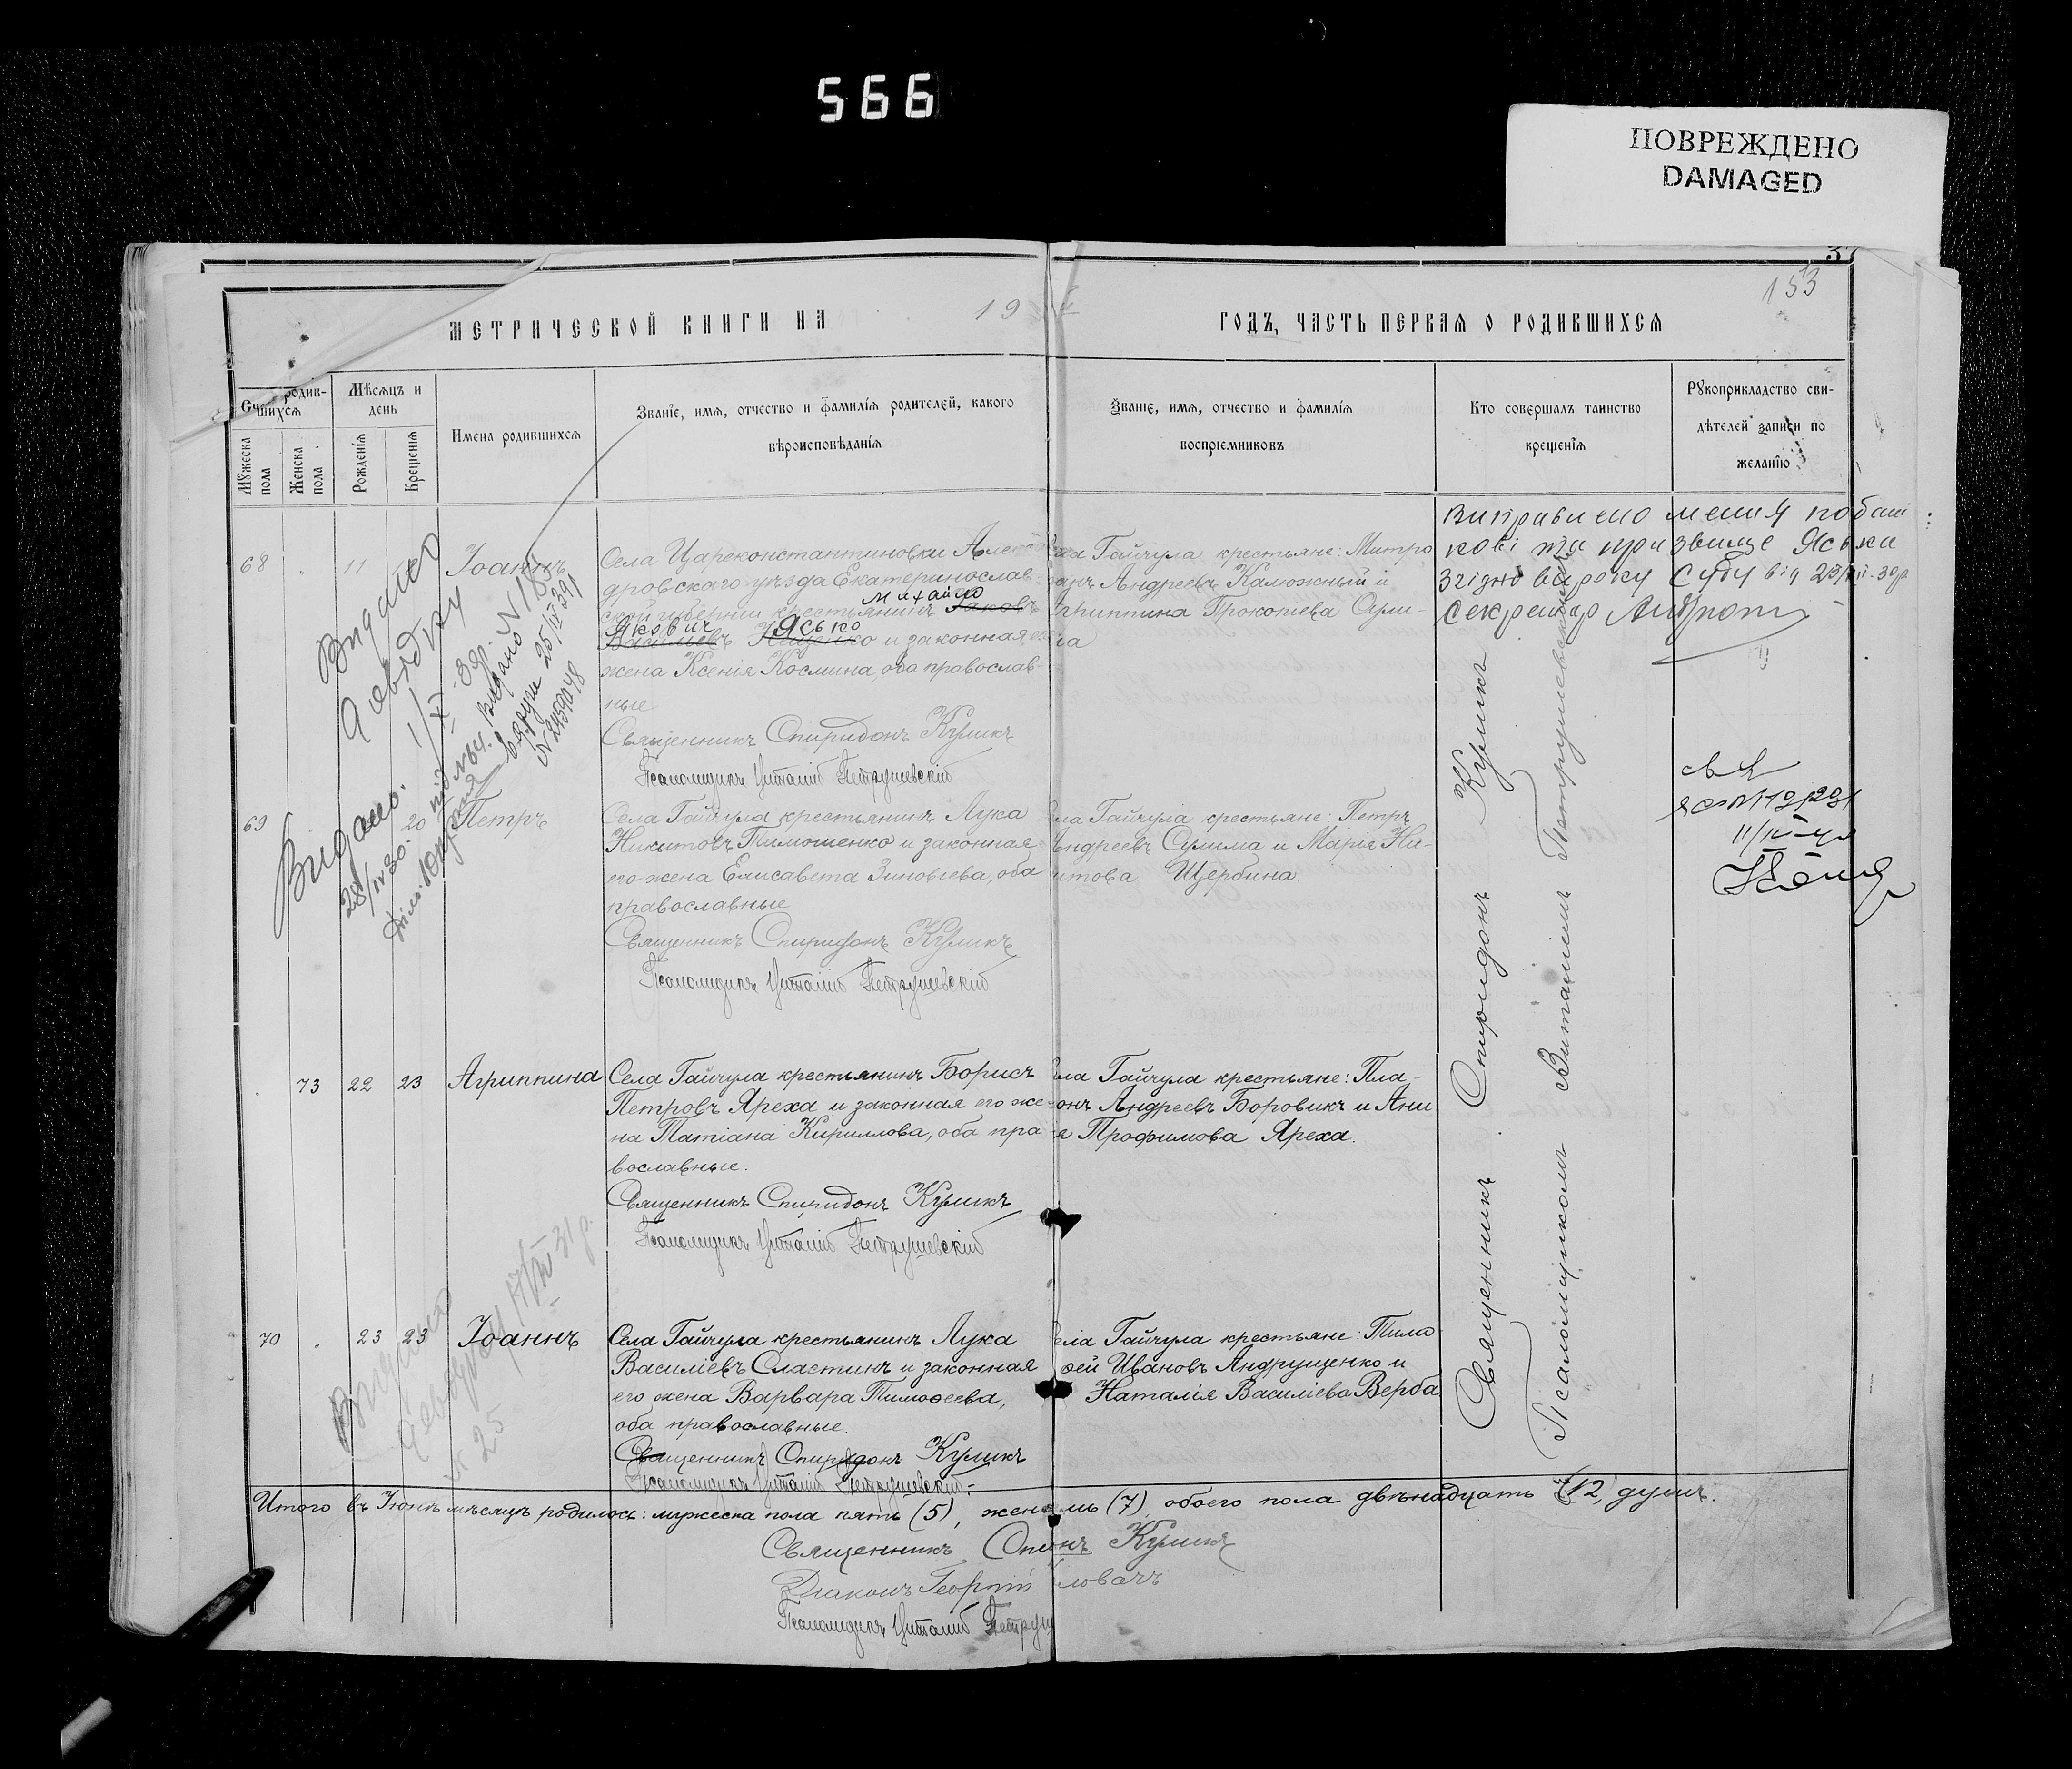 566
ПОВРЕЖДЕНО
DAMAGED
37
153
МЕТРИЧЕСКОЙ КНИГИ НА 19
ГОДЪ, ЧАСТЬ ПЕРВАЯ О РОДИВШИХСЯ
родив-
шихся
Мѣсяцъ и
день
Мужеска
пола
Женска
пола
Рожденія
Крещенія
Имена родившихся
Званіе, имя, отчество и фамилія родителей, какого
вѣроисповѣданія
Званіе, имя, отчество и фамилія
воспріемниковъ
Кто совершалъ таинство
крещенія
Рукоприкладство сви-
дѣтелей записи по
желанію
68
11
Іоаннъ
Села Цареконстантиновки Алексан
дровскаго уѣзда Екатеринослав-
ской губерніи крестьянинъ Яковъ
Михайло
Василіевъ Яценко и законная его
Якович Ясько
жена Ксенія Космина, оба православ-
ные
Священникъ Спиридонъ Куликъ
Псаломщикъ Виталій Петрушевскій
Гайчула крестьяне: Митро
Андреевъ Калюжный и
Агриппина Прокопіева Сули-
ма
Виправлено
та прізвище Яська
згідно вироку Суду від
Секретар
Видано
28/IV 30.
69
20
Петръ
Села Гайчула крестьянинъ Лука
Никитовъ Тимошенко и законная
его жена Елисавета Зиновіева, оба
православные
Священникъ Спиридонъ Куликъ
Псаломщикъ Виталій Петрушевскій
ела Гайчула крестьяне: Петръ
Андреевъ Сулима и Марія Ни-
китова Щербина.
73
22
23
Агриппина
Села Гайчула крестьянинъ Борисъ
Петровъ Яреха и законная его же-
на Татіана Кириллова, оба пра
вославные.
Священникъ Спиридонъ Куликъ
Псаломщикъ Виталій Петрушевскій
ела Гайчула крестьяне: Пла-
онъ Андреевъ Боровикъ и Анн
а Трофимова Яреха.
70
23
23
Іоаннъ
Села Гайчула крестьянинъ Лука
Василіевъ Сластинъ и законная
его жена Варвара Тимоѳеева,
оба православные.
Священникъ Спиридонъ Куликъ
Псаломщикъ Виталій Петрушевскій
ела Гайчула крестьяне: Тимо
ѳей Ивановъ Андрущенко и
Наталія Василіева Верба
Священникъ Спиридонъ Куликъ
Псаломщикомъ Виталіемъ Петрушевскимъ
Итого въ Іюнѣ мѣсяцѣ родилось: мужеска пола пять (5), женс мь (7), обоего пола двѣнадцать (12) душъ.
Священникъ Спи нъ Куликъ
Діаконъ Георгій ловачъ
Псаломщикъ Виталій Петруш